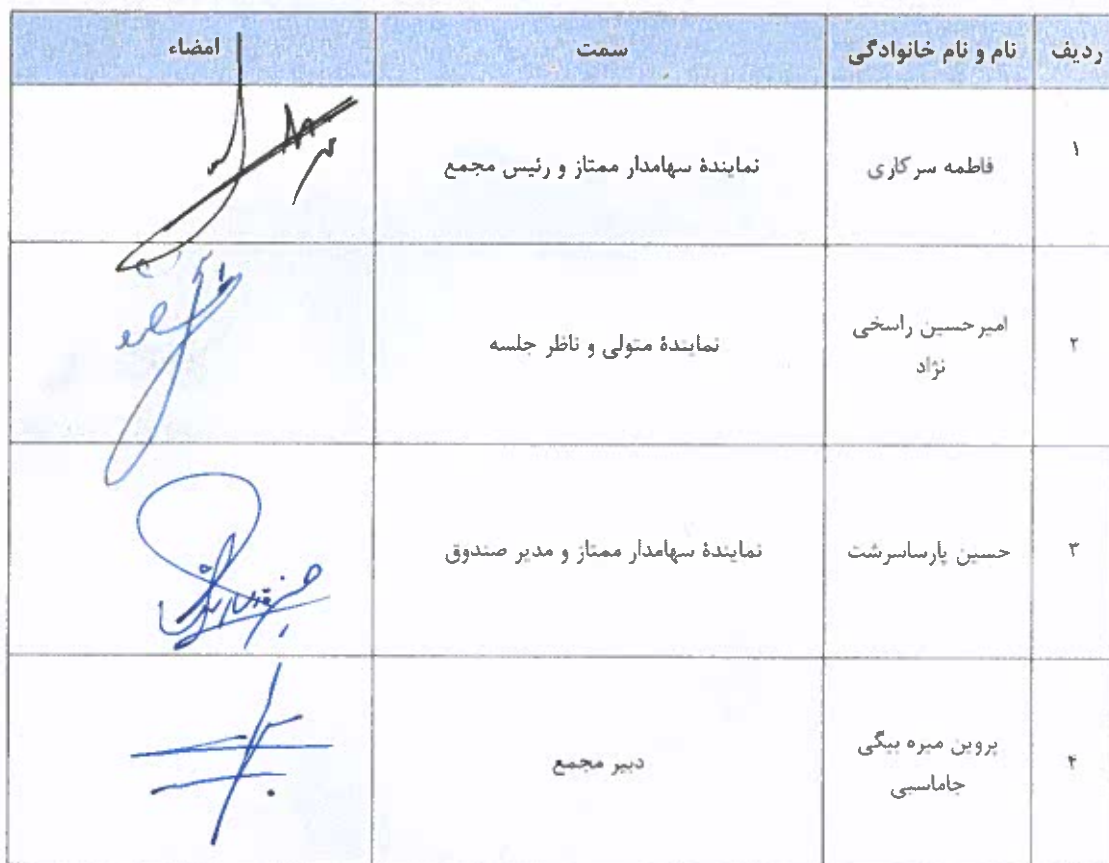 ردیف نام و نام خانوادگی سمت امضاء
۱ فاطمه سرکاری نمایندهٔ سهامدار ممتاز و رئیس مجمع
۲ امیرحسین راسخی نمایندهٔ متولی و ناظر جلسه
نژاد
۳ حسین پارساسرشت نمایندهٔ سهامدار ممتاز و مدیر صندوق
۴ پروین میره بیگی دبیر مجمع
جاماسبی